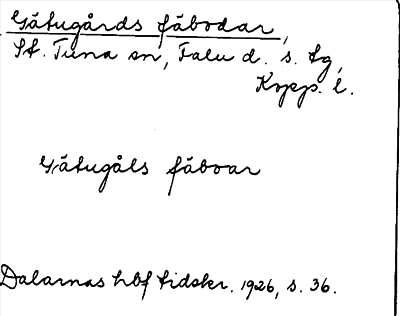 Gåtugårds fäbodar,
St. Tuna sn, Falu d. s. tg,
Kopp. l.
Gåtugåls fäboar
Dalarnas hbf tidskr. 1926, s. 36.